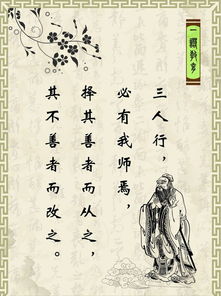 三人行，
必有我师焉，
择其善者而从之，
其不善者而改之。